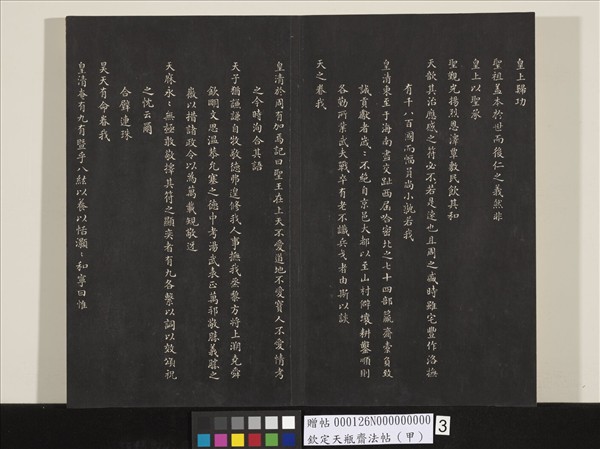 皇上歸功
聖祖蓋本於世而後仁之義然非
皇上以聖承
聖觀光揚烈恩澤覃敷民飲其和
天歆其治應感之符必不若是速也且周之盛時雖宅豐作洛撫
有千八百國而幅員尚小孰若我
皇清東至于海南盡交趾西屆哈密北之七十四部籯齎橐負致
誠貢獻者歲、不絕自京邑大都以至山村僻壤耕鑿順則
各勤所業武夫戰卒有老不識兵戈者由斯以談
天之眷我
皇清於周有加焉記曰聖王在上天不愛道地不愛寶人不愛情考
之今時洵合其語
天子猶謙謙自牧敬德弗遑修我人事撫我烝黎方將上溯堯舜
欽明文思溫恭允塞之德中考湯武表正萬邦敬勝義勝之
嚴以措諸政令以為萬載規敬迓
天庥永、無極敢敬擇其符之顯奕者有九各繫以詞以效頌祝
之忱云爾
合璧連珠
昊天有命眷我
皇清奄有九有暨乎八紘以養以恬灝、和寧日惟
贈帖 000126N000000000
欽定天瓶齋法帖（甲）
3